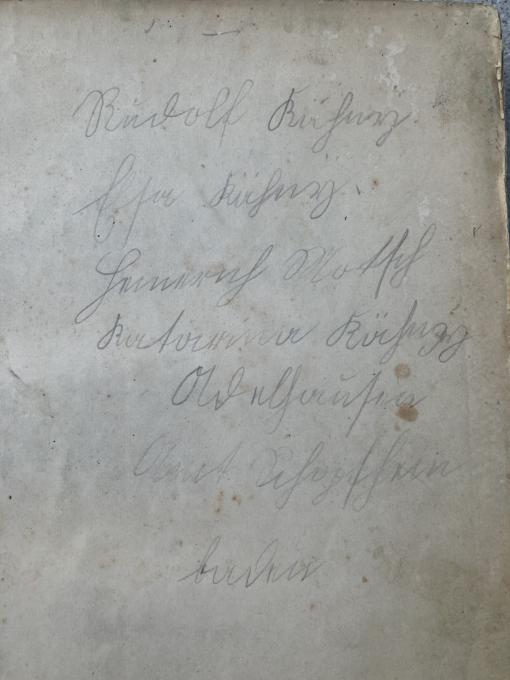 Rudolf Kühny.
Elsa Kühny.
Heinerich Motsch
Katarina Kühny
Adelhausen
Amt Schopfheim
baden